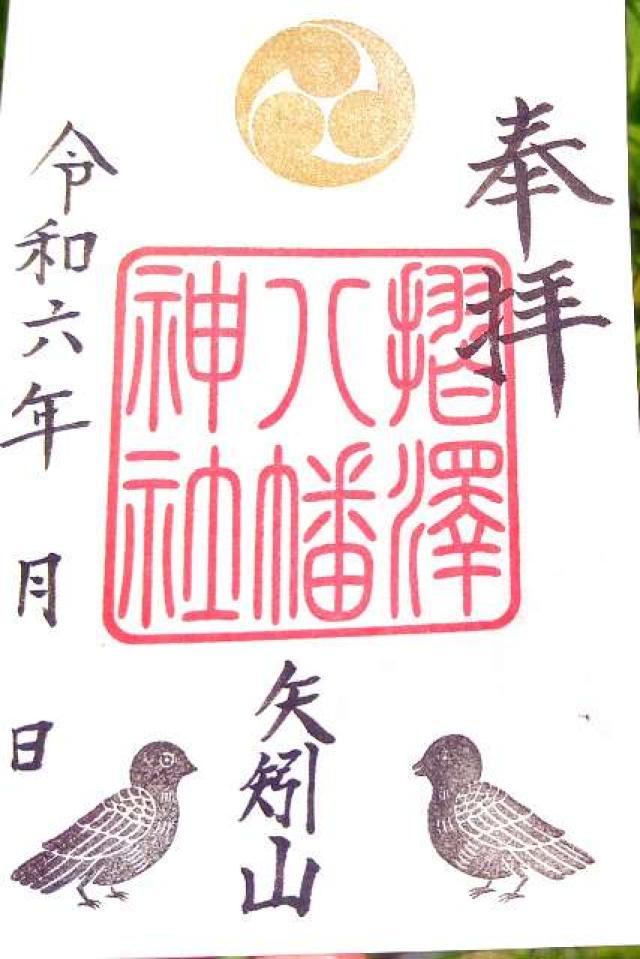 奉拝
摺澤
八幡
神社
矢矧山
令和六年 月 日